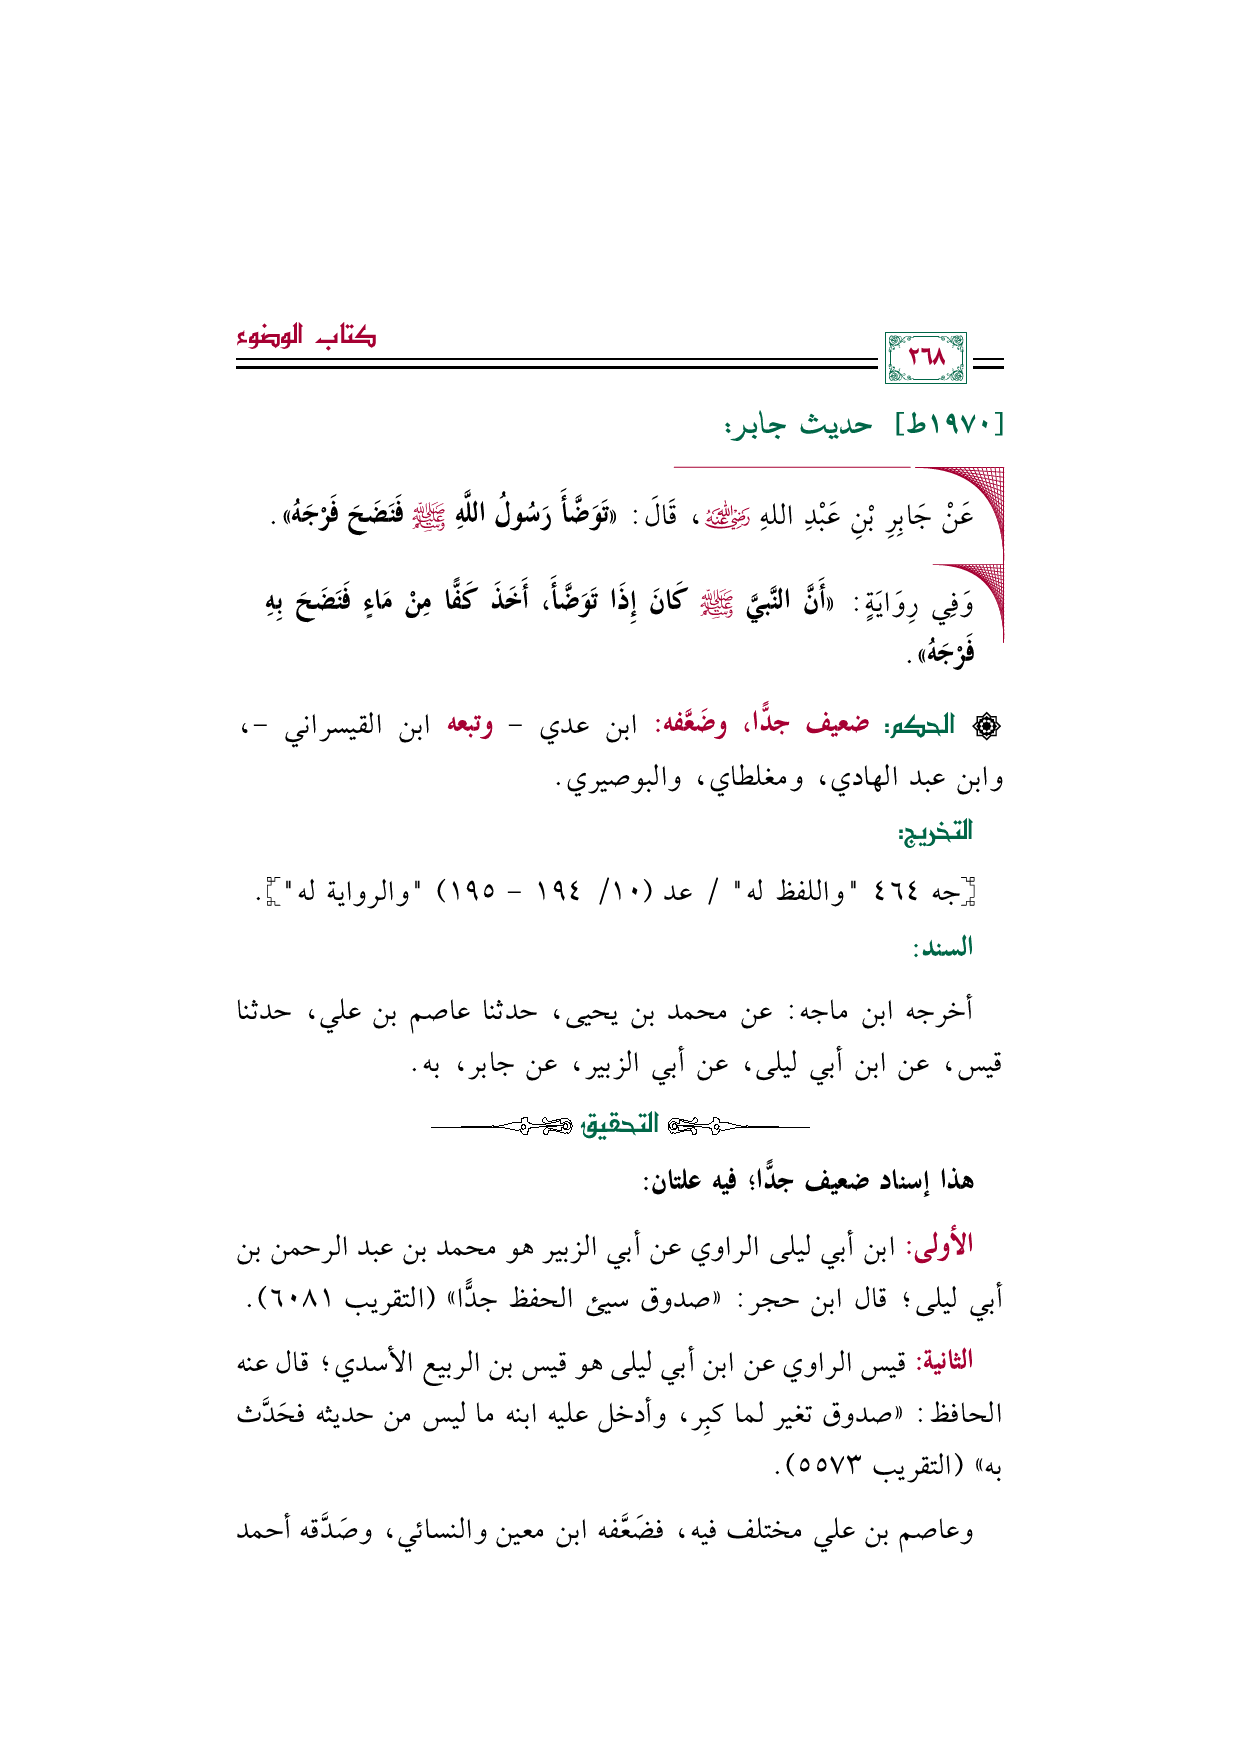 كتاب الوضوء
٢٦٨
[١٩٧٠ط] حديث جابر:
عَنْ جَابِرِ بْنِ عَبْدِ اللهِ رضي الله عنه، قَالَ: «تَوَضَّأَ رَسُولُ اللَّهِ ﷺ فَنَضَحَ فَرْجَهُ».
وَفِي رِوَايَةٍ: «أَنَّ النَّبِيَّ ﷺ كَانَ إِذَا تَوَضَّأَ، أَخَذَ كَفًّا مِنْ مَاءٍ فَنَضَحَ بِهِ
فَرْجَهُ».
الحكم: ضعيف جدًّا، وضَعَّفه: ابن عدي - وتبعه ابن القيسراني -،
وابن عبد الهادي، ومغلطاي، والبوصيري.
التخريج:
[جه ٤٦٤ "واللفظ له" / عد (١٠/ ١٩٤ - ١٩٥) "والرواية له"].
السند:
أخرجه ابن ماجه: عن محمد بن يحيى، حدثنا عاصم بن علي، حدثنا
قيس، عن ابن أبي ليلى، عن أبي الزبير، عن جابر، به.
التحقيق
هذا إسناد ضعيف جدًّا؛ فيه علتان:
الأولى: ابن أبي ليلى الراوي عن أبي الزبير هو محمد بن عبد الرحمن بن
أبي ليلى؛ قال ابن حجر: «صدوق سيئ الحفظ جدًّا» (التقريب ٦٠٨١).
الثانية: قيس الراوي عن ابن أبي ليلى هو قيس بن الربيع الأسدي؛ قال عنه
الحافظ: «صدوق تغير لما كبِر، وأدخل عليه ابنه ما ليس من حديثه فحَدَّث
به» (التقريب ٥٥٧٣).
وعاصم بن علي مختلف فيه، فضَعَّفه ابن معين والنسائي، وصَدَّقه أحمد